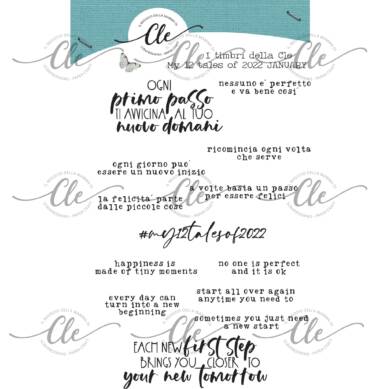 Cle
I timbri della Cle
My 12 tales of 2022 JANUARY
OGNI
primo passo
TI AVVICINA AL TUO
nuovo domani
nessuno e' perfetto
e va bene cosi
ricomincia ogni volta
che serve
ogni giorno puo'
essere un nuovo inizio
a volte basta un passo
per essere felici
la felicita' parte
dalle piccole cose
#my12talesof2022
happiness is
made of tiny moments
no one is perfect
and it is ok
every day can
turn into a new
beginning
start all over again
anytime you need to
sometimes you just need
a new start
EACH NEW first step
BRINGS YOU CLOSER TO
your new tomorrow